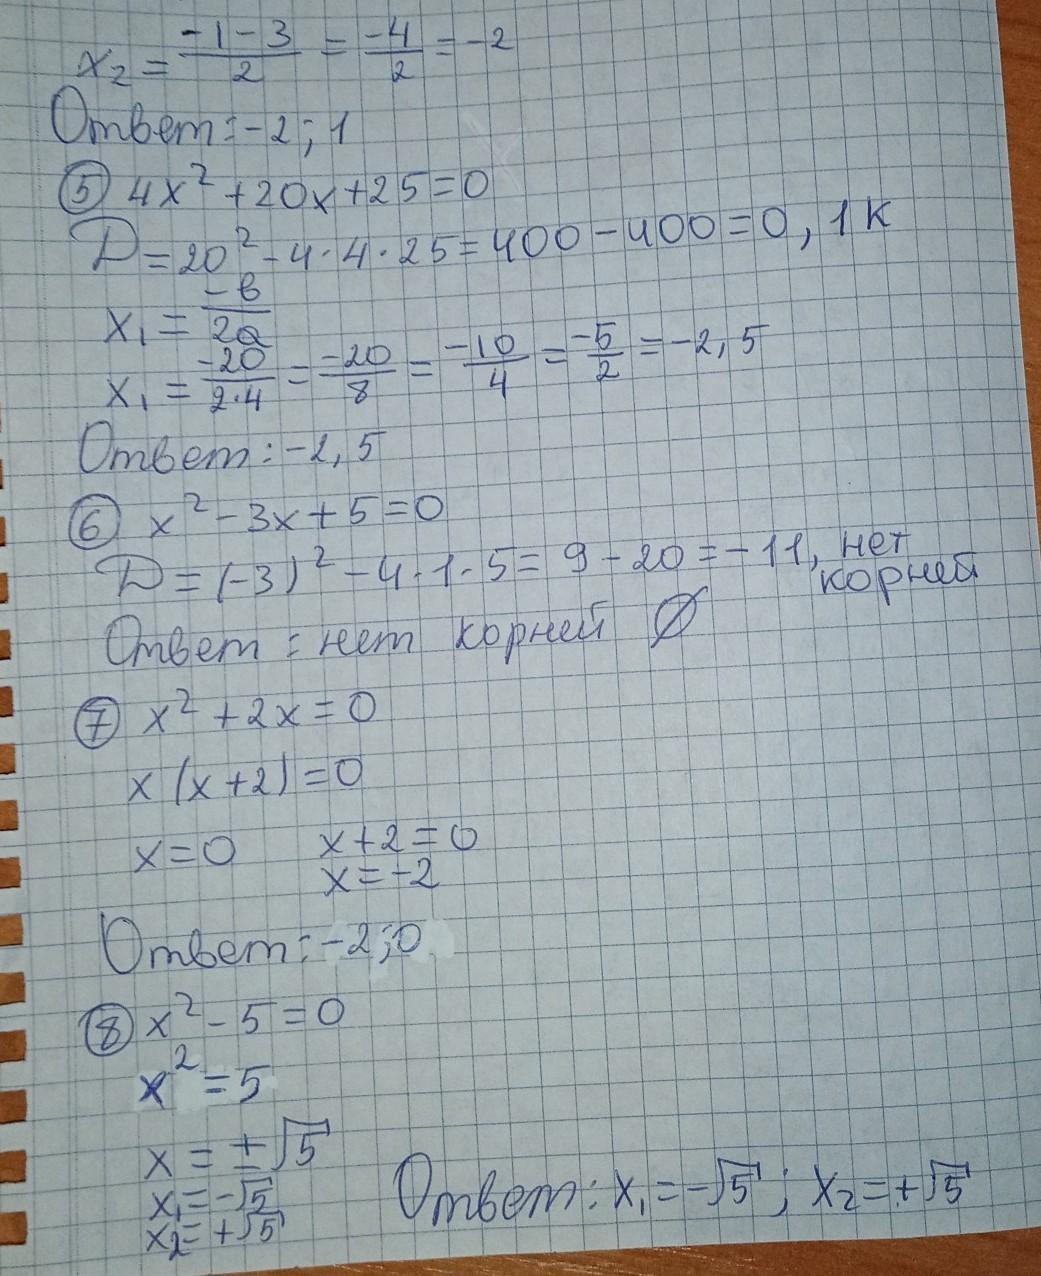 x₂ = (-1-3)/2 = -4/2 = -2
Ответ: -2; 1
⑤ 4x² + 20x + 25 = 0
D = 20² - 4·4·25 = 400 - 400 = 0, 1 к
x₁ = -в/2a
x₁ = -20/2·4 = -20/8 = -10/4 = -5/2 = -2,5
Ответ: -2,5
⑥ x² - 3x + 5 = 0
D = (-3)² - 4·1·5 = 9 - 20 = -11, нет
корней
Ответ: нет корней ∅
⑦ x² + 2x = 0
x(x+2) = 0
x = 0 x+2 = 0
x = -2
Ответ: -2; 0
⑧ x² - 5 = 0
x² = 5
x = ±√5
x₁ = -√5
x₂ = +√5
Ответ: x₁ = -√5; x₂ = +√5